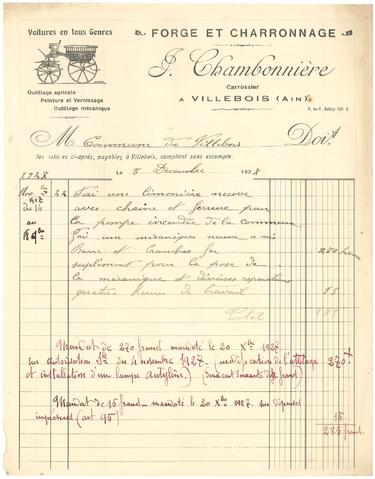 Voitures en tous Genres
FORGE ET CHARRONNAGE
J. Chambonnière
Carrossier
A VILLEBOIS (AIN)
Outillage agricole
Peinture et Vernissage
Outillage mécanique
M Commune de Villebois Doit
les articles ci-après, payables à Villebois, comptant sans escompte.
Le 8 Décembre 1928
1928
Fai une limonière neuve
avec chaine et ferrure pour
la pompe incendie de la commune
Fai une mécanique neuve a mis
Barre et Francbas fer 270 francs
suplément pour la pose de
la mécanique et diverses réparations
quatres heures de travail 15
Total 285
Mandat de 270 francs mandaté le 20 Xbre 1927
sur autorisation du 4 novembre 1927. (modification de l'attelage 270
et installation d'une lampe Acétylène) (deux cent soixante dix francs)
Mandat de 15 francs mandaté le 20 Xbre 1927 sur dépenses
imprévues (art 95) 15
285 francs